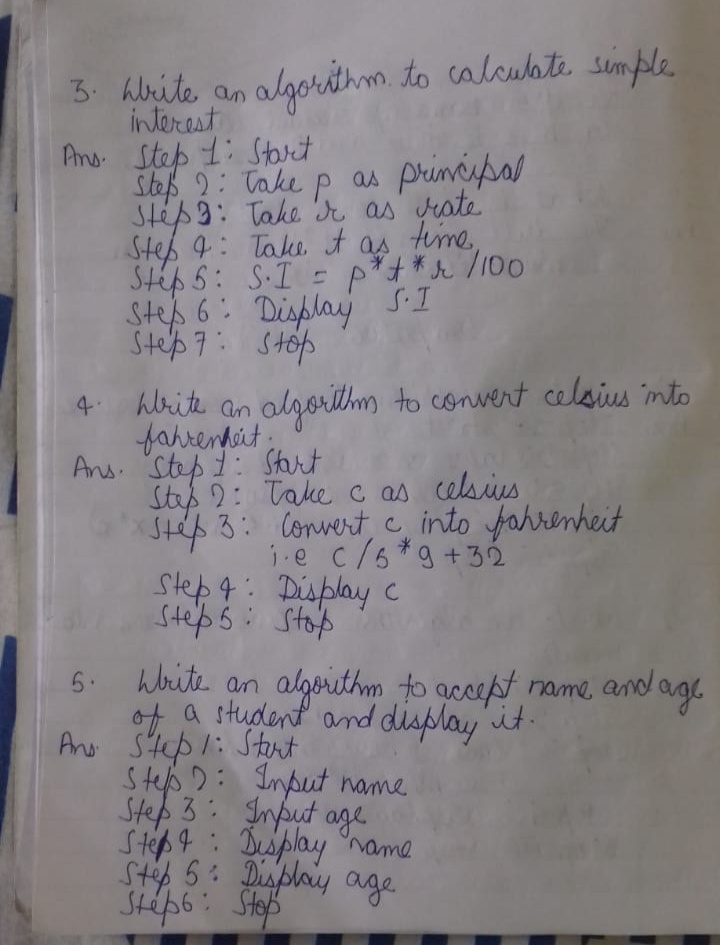 3. Write an algorithm to calculate simple
interest
Ans. Step 1: Start
Step 2: Take p as principal
Step 3: Take r as rate
Step 4: Take t as time
Step 5: S.I = p*t*r/100
Step 6: Display S.I
Step 7: Stop
4. Write an algorithm to convert celsius into
fahrenheit.
Ans. Step 1: Start
Step 2: Take c as celsius
Step 3: Convert c into fahrenheit
i.e C/5*9+32
Step 4: Display c
Step 5: Stop
5. Write an algorithm to accept name and age
of a student and display it.
Ans. Step 1: Start
Step 2: Input name
Step 3: Input age
Step 4: Display name
Step 5: Display age
Step 6: Stop